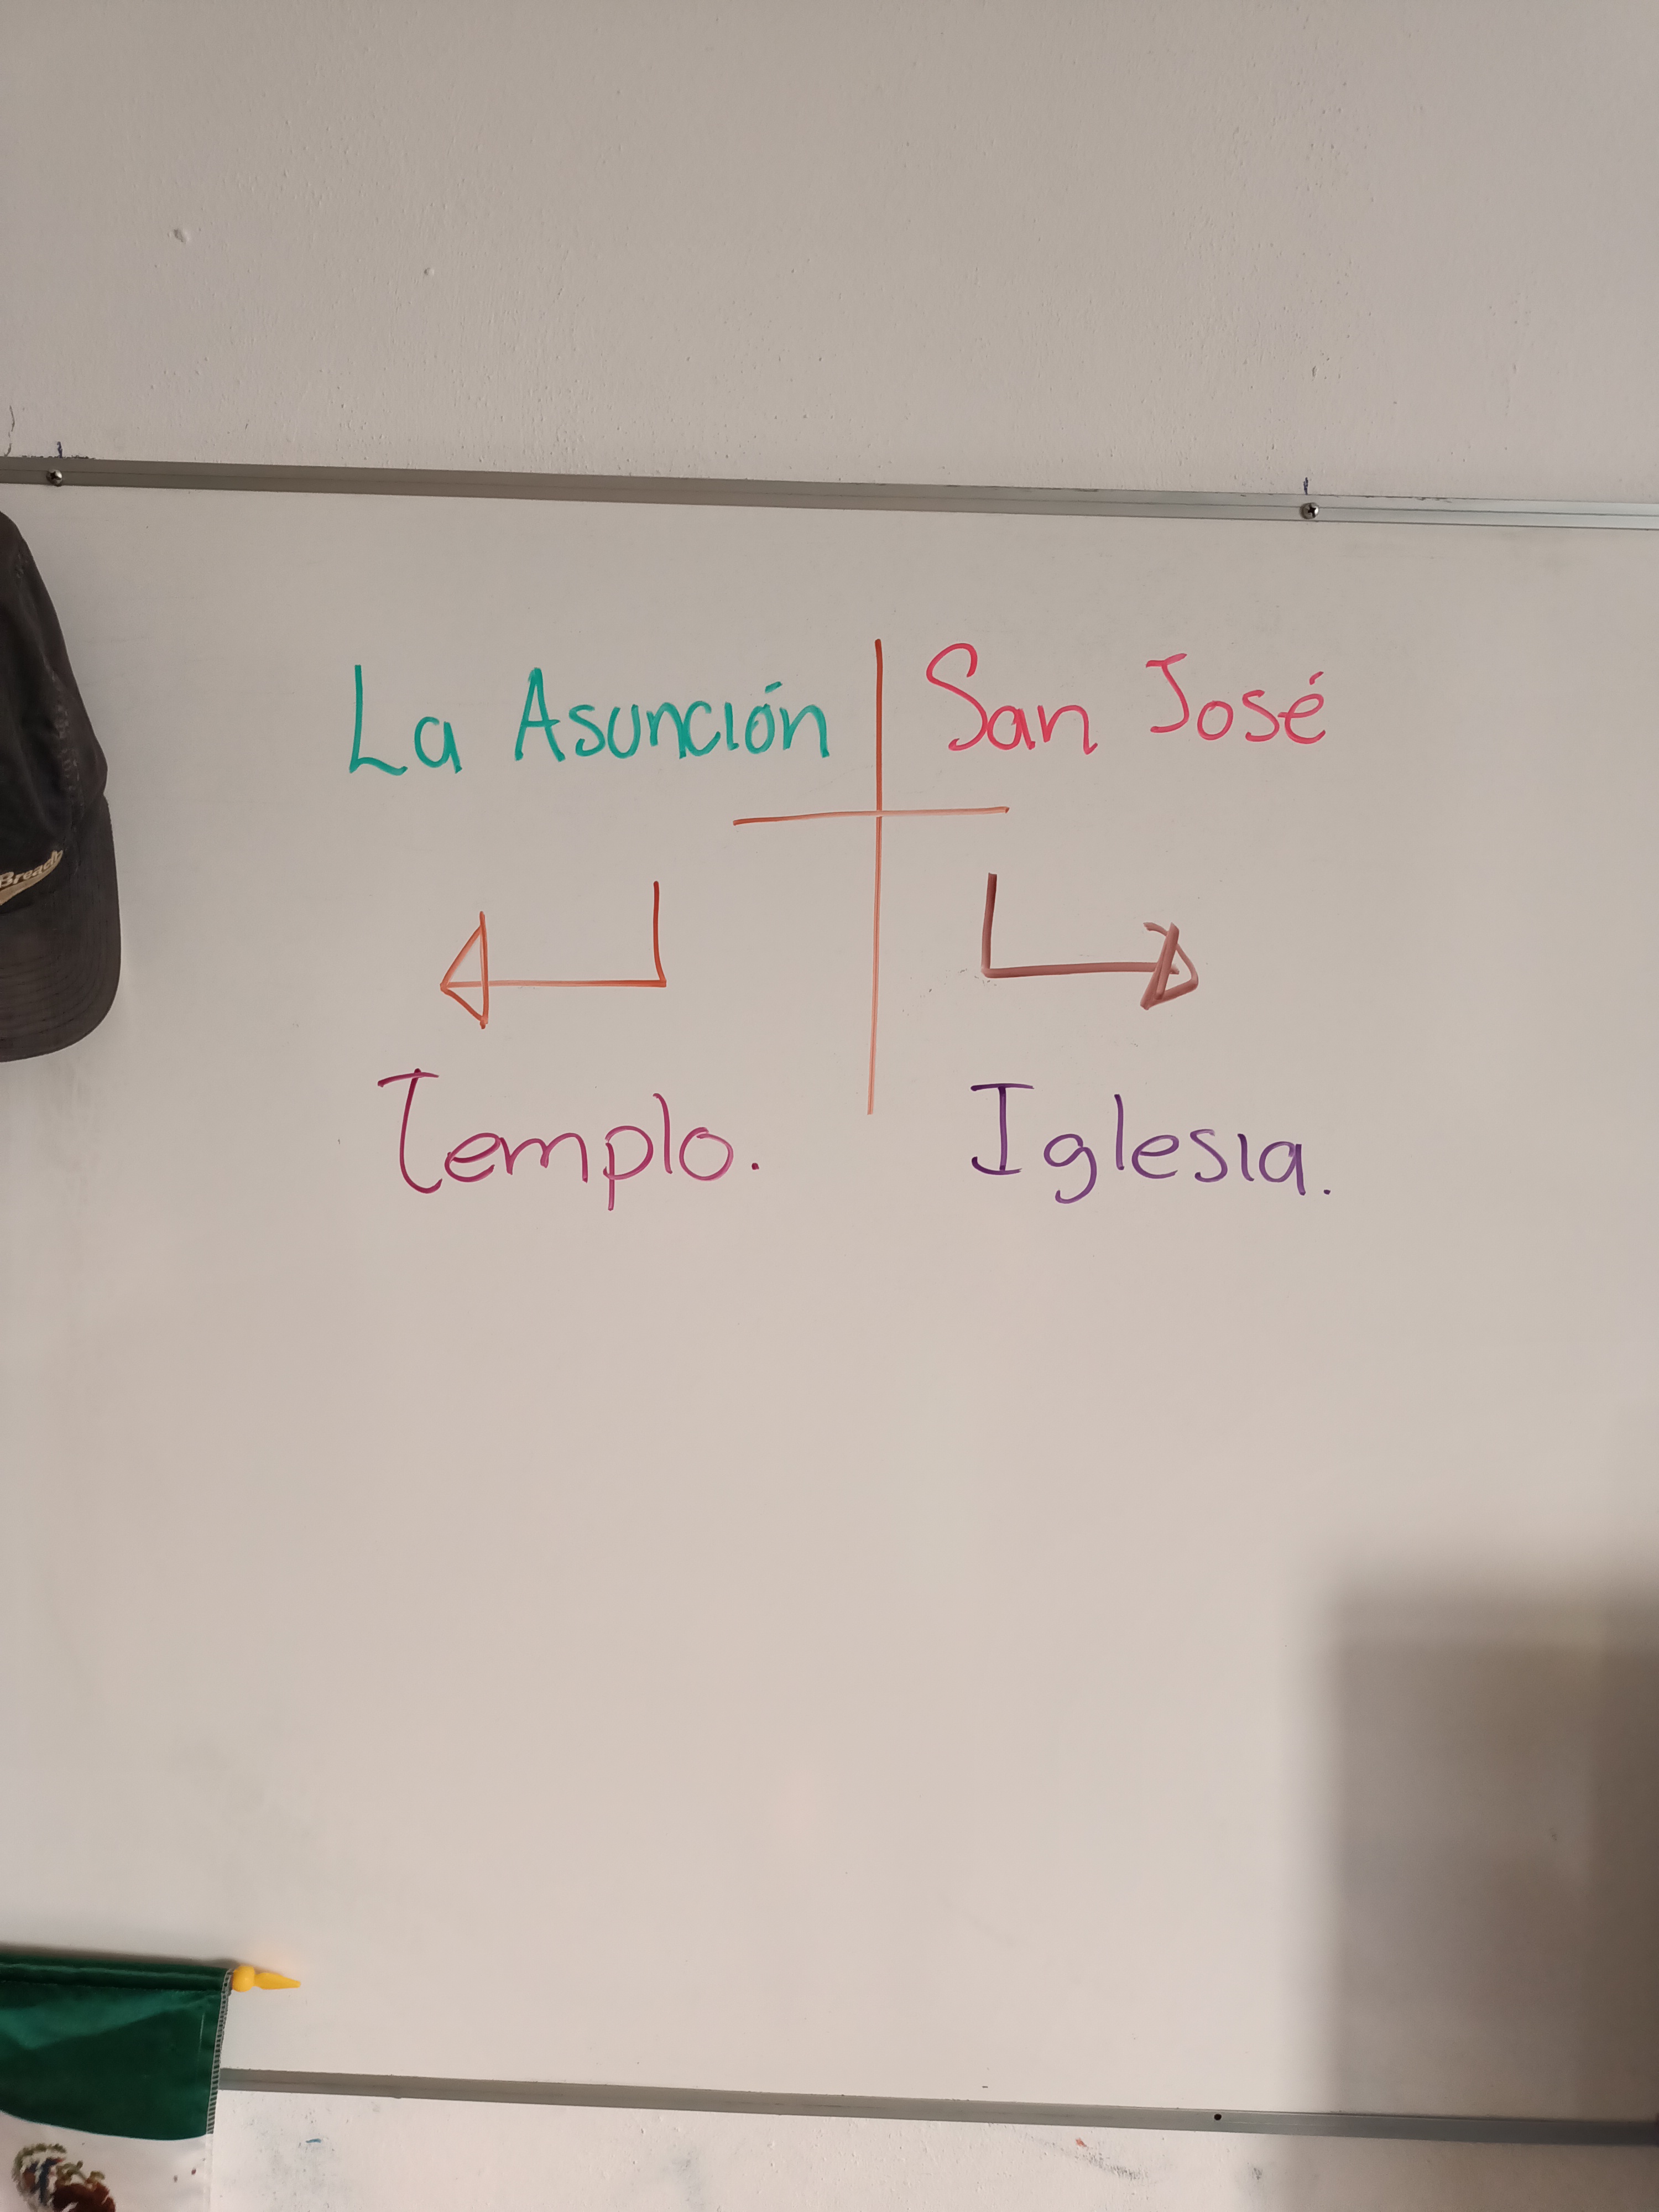 La Asunción
San José
Templo.
Iglesia.
Breach